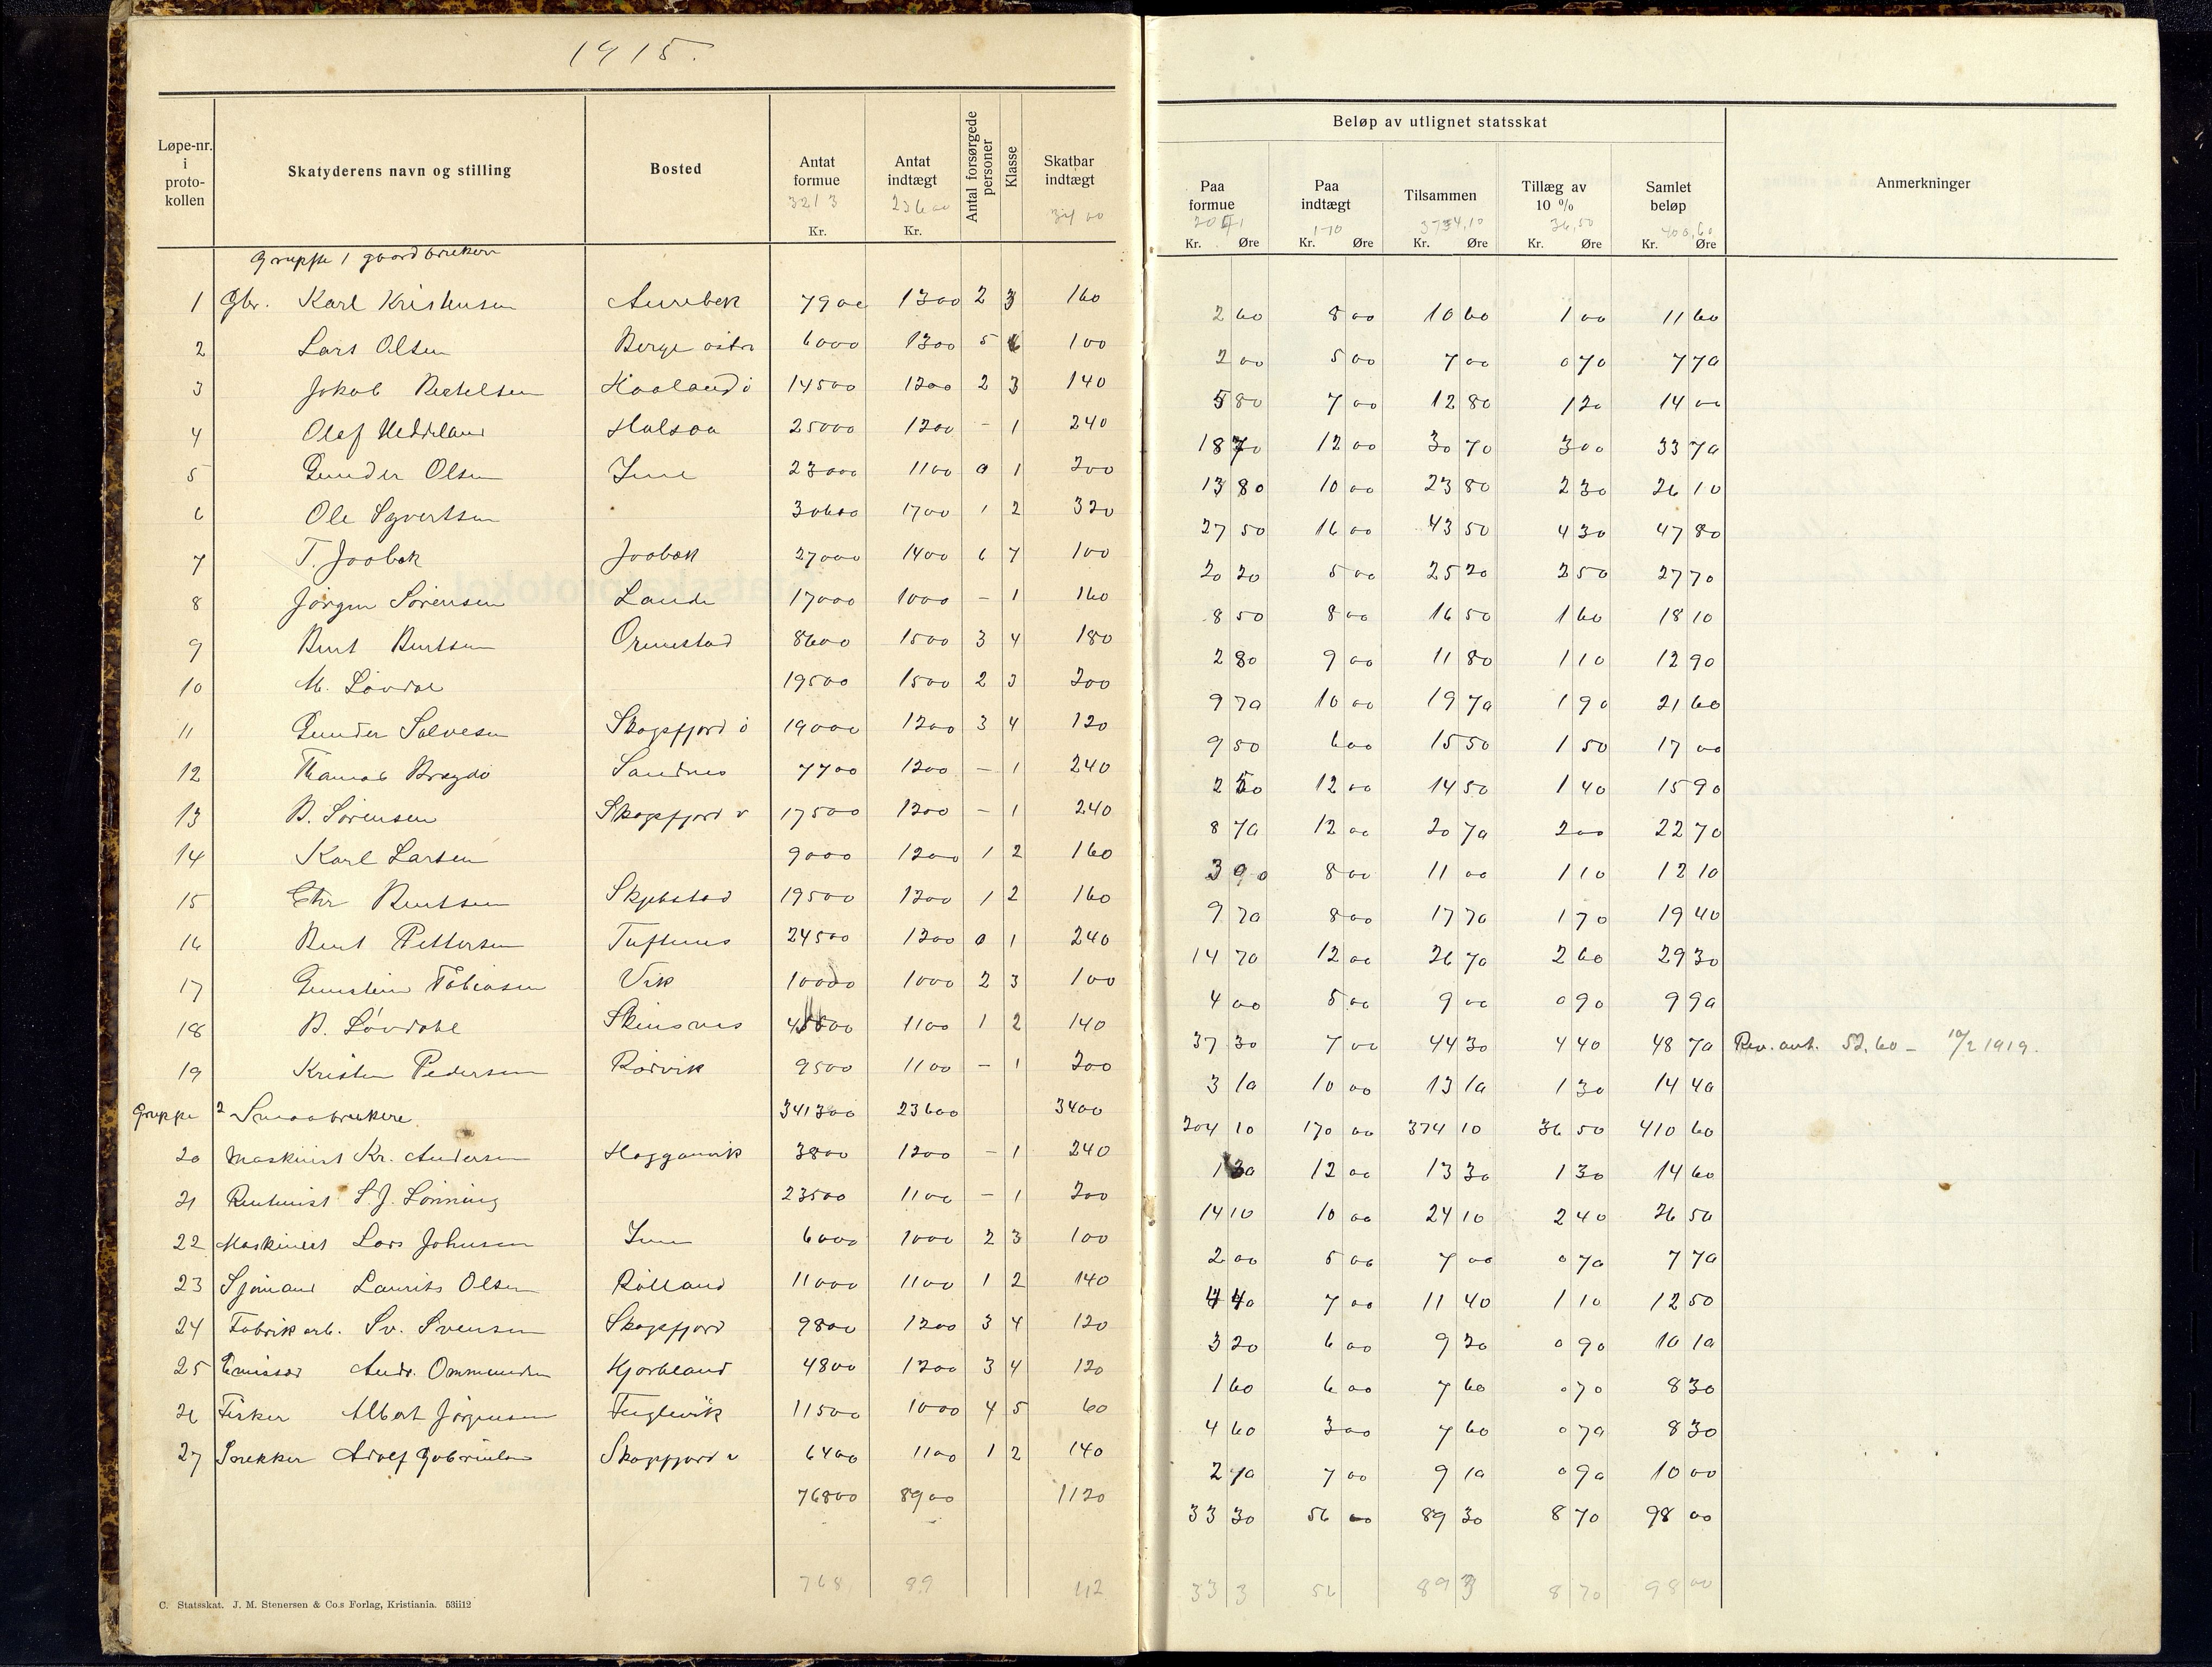 1915.
Løpe-nr. i proto-kollen | Skatyderens navn og stilling | Bosted | Antat formue 3213 Kr. | Antat indtægt 23600 Kr. | Antal forsørgede personer | Klasse | Skatbar indtægt 3400 | Beløp av utlignet statsskat | Paa formue Kr. Øre | Paa indtægt 170 Kr. Øre | Tilsammen Kr. Øre | Tillæg av 10 % 36,50 Kr. Øre | Samlet beløp Kr. Øre | Anmerkninger
Gruppe 1 gaardbrukere
1 Gbr. Karl Kristensen Aurebek 7900 1300 2 3 160 2 60 8 00 10 60 1 00 11 60
2 Lars Olsen Berge östre 6000 1300 5 6 100 2 00 5 00 7 00 0 70 7 70
3 Jokob Bertelsen Haaland ö 14500 1200 2 3 140 5 80 7 00 12 80 1 20 14 00
4 Olaf Heddeland Halsaa 25000 1200 - 1 240 18 70 12 00 30 70 3 00 33 70
5 Gunder Olsen Ime 23000 1100 0 1 200 13 80 10 00 23 80 2 30 26 10
6 Ole Syvertsen 30600 1700 1 2 320 27 50 16 00 43 50 4 30 47 80
7 T. Jaabek Jaabæk 27000 1400 6 7 100 20 20 5 00 25 20 2 50 27 70
8 Jörgen Sörensen Lande 17000 1000 - 1 160 8 50 8 00 16 50 1 60 18 10
9 Bent Bentsen Ormestad 8600 1500 3 4 180 2 80 9 00 11 80 1 10 12 90
10 M. Lövdal 19500 1500 2 3 200 9 70 10 00 19 70 1 90 21 60
11 Gunder Salvesen Skogsfjord ö 19000 1200 3 4 120 9 50 6 00 15 50 1 50 17 00
12 Thomas Bragdö Sandnes 7700 1200 - 1 240 2 50 12 00 14 50 1 40 15 90
13 B. Sörensen Skogsfjord v 17500 1200 - 1 240 8 70 12 00 20 70 2 00 22 70
14 Karl Larsen 9000 1200 1 2 160 3 90 8 00 11 00 1 10 12 10
15 Chr Bentsen Skjebstad 19500 1200 1 2 160 9 70 8 00 17 70 1 70 19 40
16 Bent Pettersen Tuftenes 24500 1200 0 1 240 14 70 12 00 26 70 2 60 29 30
17 Gunstein Tobiasen Vik 10000 1000 2 3 100 4 00 5 00 9 00 0 90 9 90
18 B. Lövdahl Skinsnes 1100 1 2 140 37 30 7 00 44 30 4 40 48 70 Rev. ant. 52,60 - 10/2 1919.
19 Kristen Pedersen Rörvik 9500 1100 - 1 200 3 10 10 00 13 10 1 30 14 40
Gruppe 2 Smaabrukere. 341300 23600 3400 204 10 170 00 374 10 36 50 410 60
20 Maskinist Kr. Andersen Hogganvik 3800 1200 - 1 240 1 30 12 00 13 30 1 30 14 60
21 Rentenist S. J. Lönning 23500 1100 - 1 200 14 10 10 00 24 10 2 40 26 50
22 Maskinist Lars Johnsen Ime 6000 1000 2 3 100 2 00 5 00 7 00 0 70 7 70
23 Sjömand Laurits Olsen Rölland 11000 1100 1 2 140 4 40 7 00 11 40 1 10 12 50
24 Fabrikarb. Sv. Svensen Skogsfjord 9800 1200 3 4 120 3 20 6 00 9 20 0 90 10 10
25 Emissær Andr. Ommundsen Kjorheland 4800 1200 3 4 120 1 60 6 00 7 60 0 70 8 30
26 Fisker Albert Jörgensen Fuglevik 11500 1000 4 5 60 4 60 3 00 7 60 0 70 8 30
27 Snekker Adolf Gabrielsen Skogsfjord v 6400 1100 1 2 140 2 10 7 00 9 10 0 90 10 00
76800 8900 1120 33 30 56 00 89 30 8 70 98 00
768 89 112 33 3 56 89 3 8 70 98 00
C. Statsskat. J. M. Stenersen & Co.s Forlag, Kristiania. 53ii12